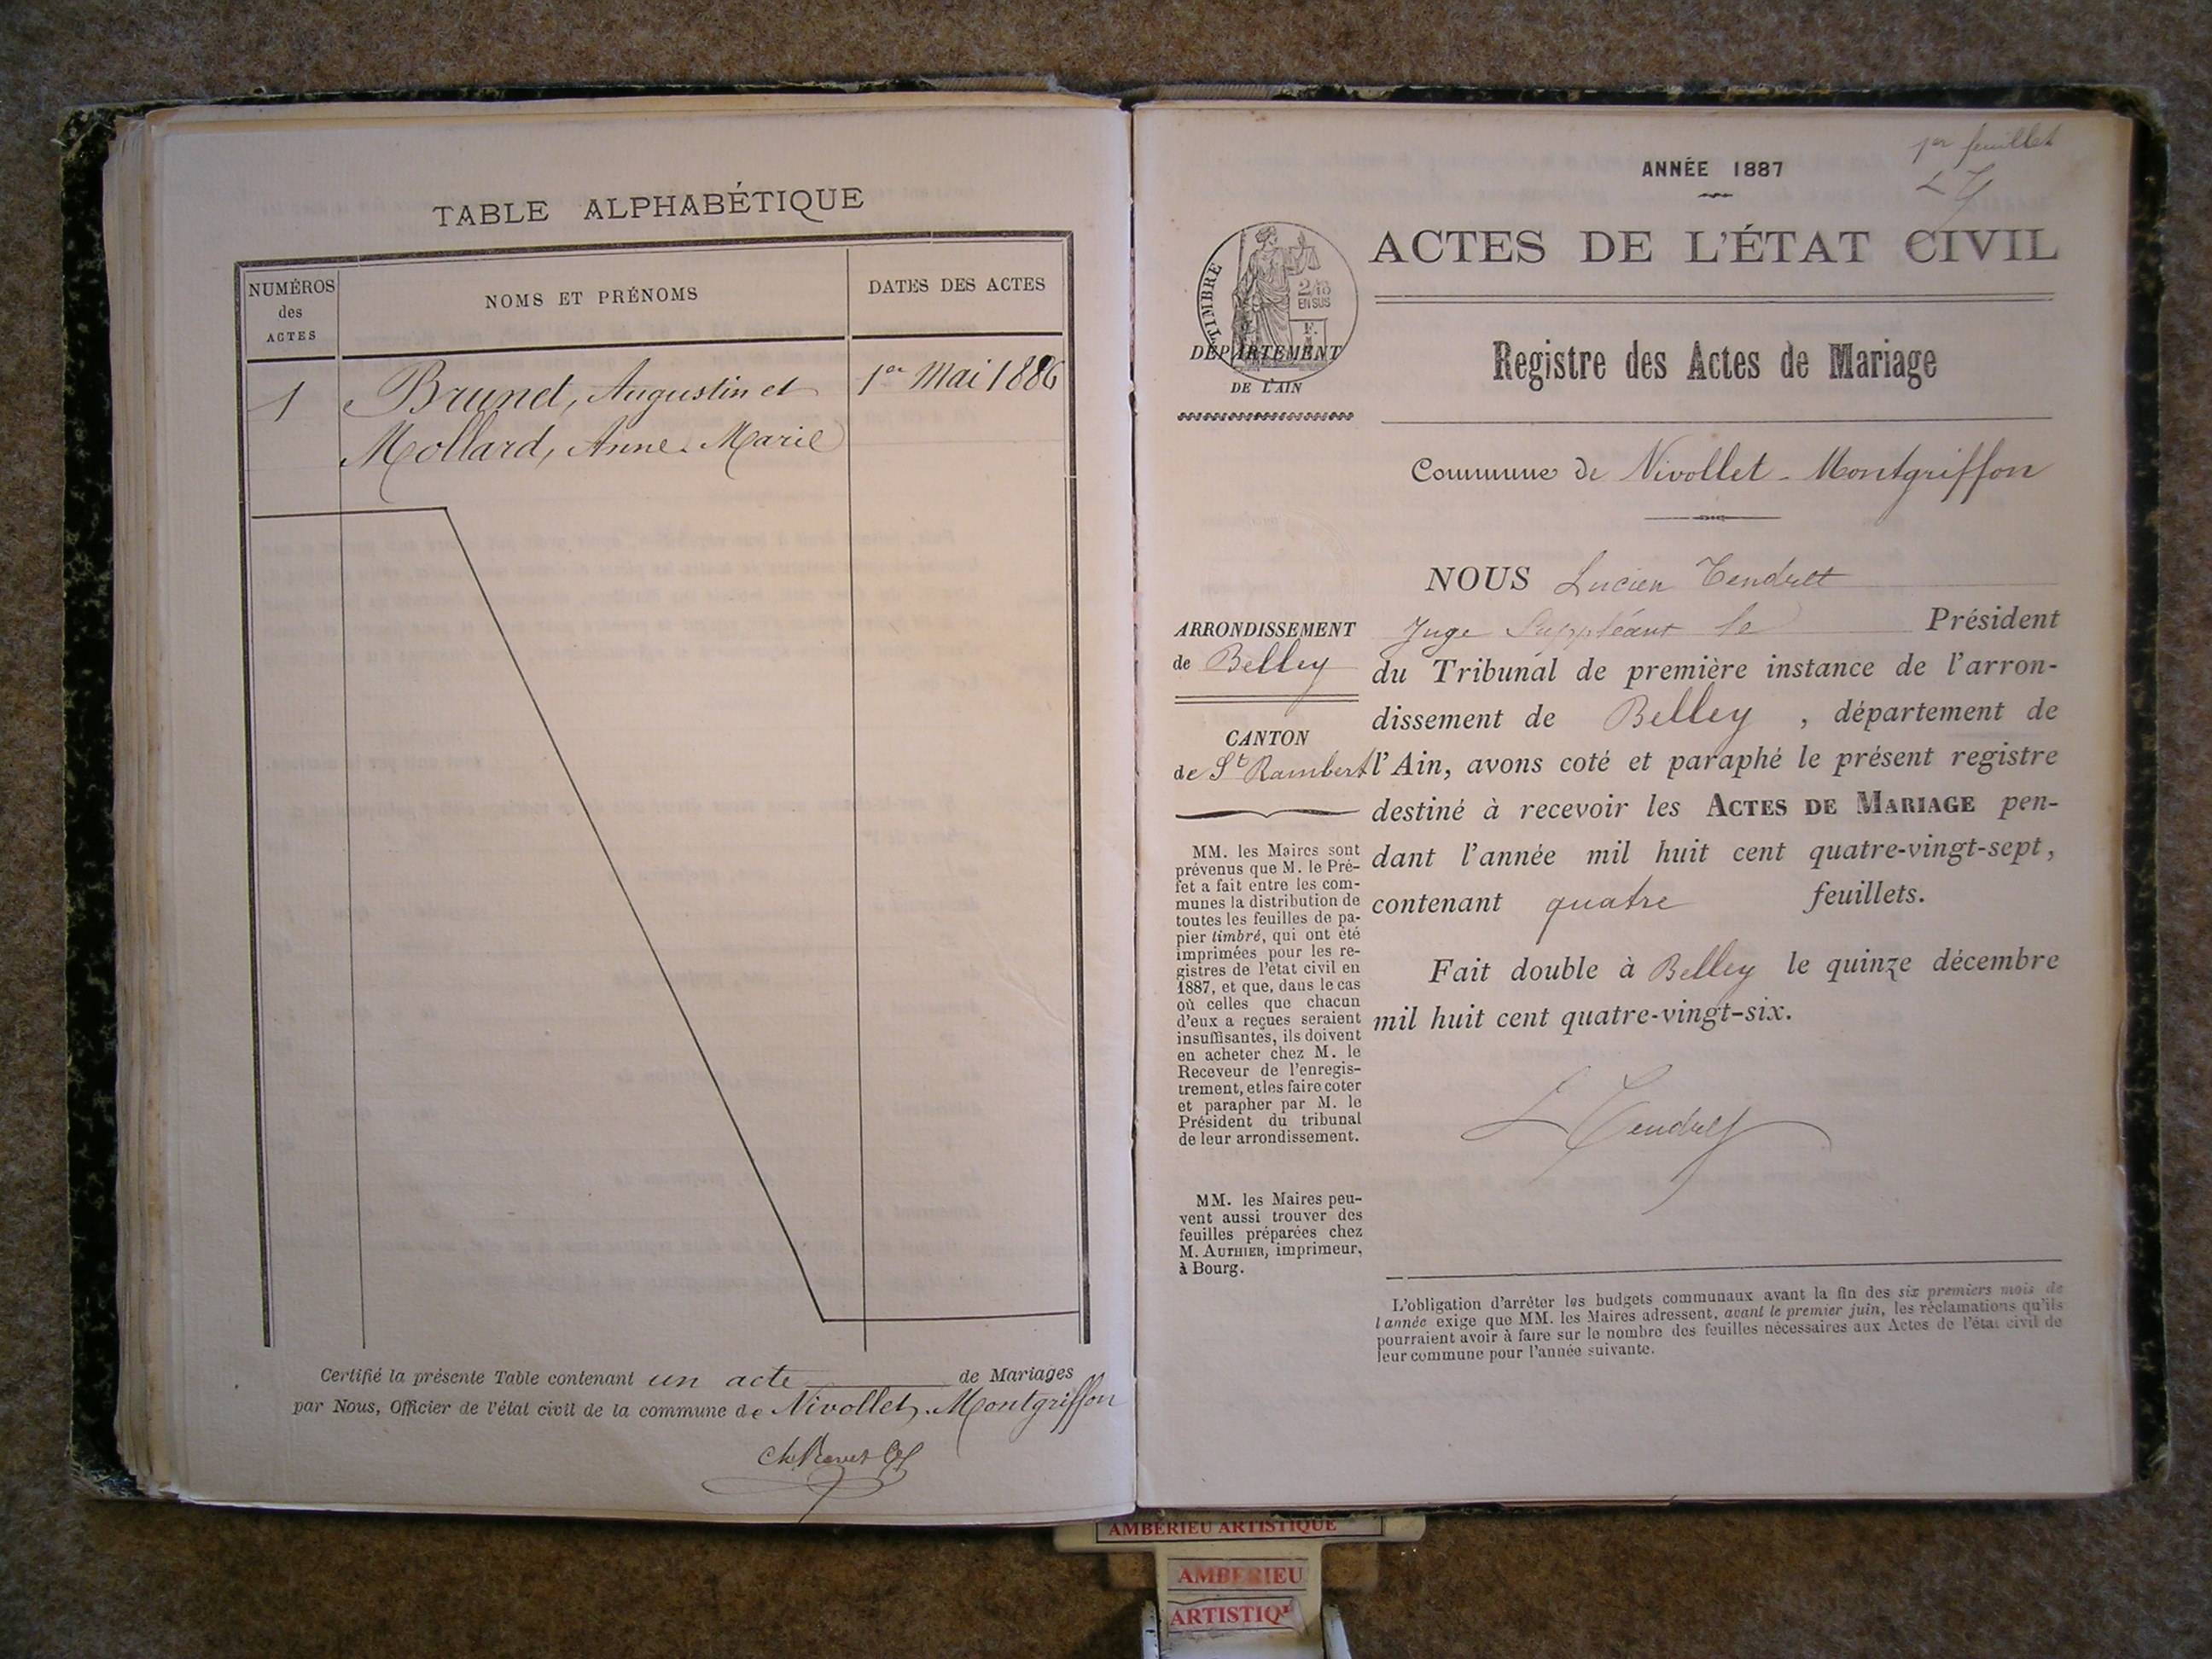 TABLE ALPHABÉTIQUE
NUMÉROS
des
ACTES
NOMS ET PRÉNOMS
DATES DES ACTES
1
Brunet, Augustin et
1er Mai 1886
Mollard, Anne-Marie
Certifié la présente Table contenant un acte de Mariages
par Nous, Officier de l'état civil de la commune de Nivollet-Montgriffon
1er feuillet
ANNÉE 1887
ACTES DE L'ÉTAT CIVIL
TIMBRE
2/10
EN SUS
F.
DÉPARTEMENT
DE L'AIN
Registre des Actes de Mariage
Commune de Nivollet-Montgriffon
ARRONDISSEMENT
de Belley
CANTON
de St Rambert
MM. les Maires sont
prévenus que M. le Pré-
fet a fait entre les com-
munes la distribution de
toutes les feuilles de pa-
pier timbré, qui ont été
imprimées pour les re-
gistres de l'état civil en
1887, et que, dans le cas
où celles que chacun
d'eux a reçues seraient
insuffisantes, ils doivent
en acheter chez M. le
Receveur de l'enregis-
trement, et les faire coter
et parapher par M. le
Président du tribunal
de leur arrondissement.
MM. les Maires peu-
vent aussi trouver des
feuilles préparées chez
M. AUTHIER, imprimeur,
à Bourg.
NOUS Lucien Tendret
Juge Suppléant le Président
du Tribunal de première instance de l'arron-
dissement de Belley, département de
l'Ain, avons coté et paraphé le présent registre
destiné à recevoir les ACTES DE MARIAGE pen-
dant l'année mil huit cent quatre-vingt-sept,
contenant quatre feuillets.
Fait double à Belley le quinze décembre
mil huit cent quatre-vingt-six.
L Tendret
L'obligation d'arrêter les budgets communaux avant la fin des six premiers mois de
l'année exige que MM. les Maires adressent, avant le premier juin, les réclamations qu'ils
pourraient avoir à faire sur le nombre des feuilles nécessaires aux Actes de l'état civil de
leur commune pour l'année suivante.
AMBERIEU ARTISTIQUE
AMBERIEU
ARTISTIQ